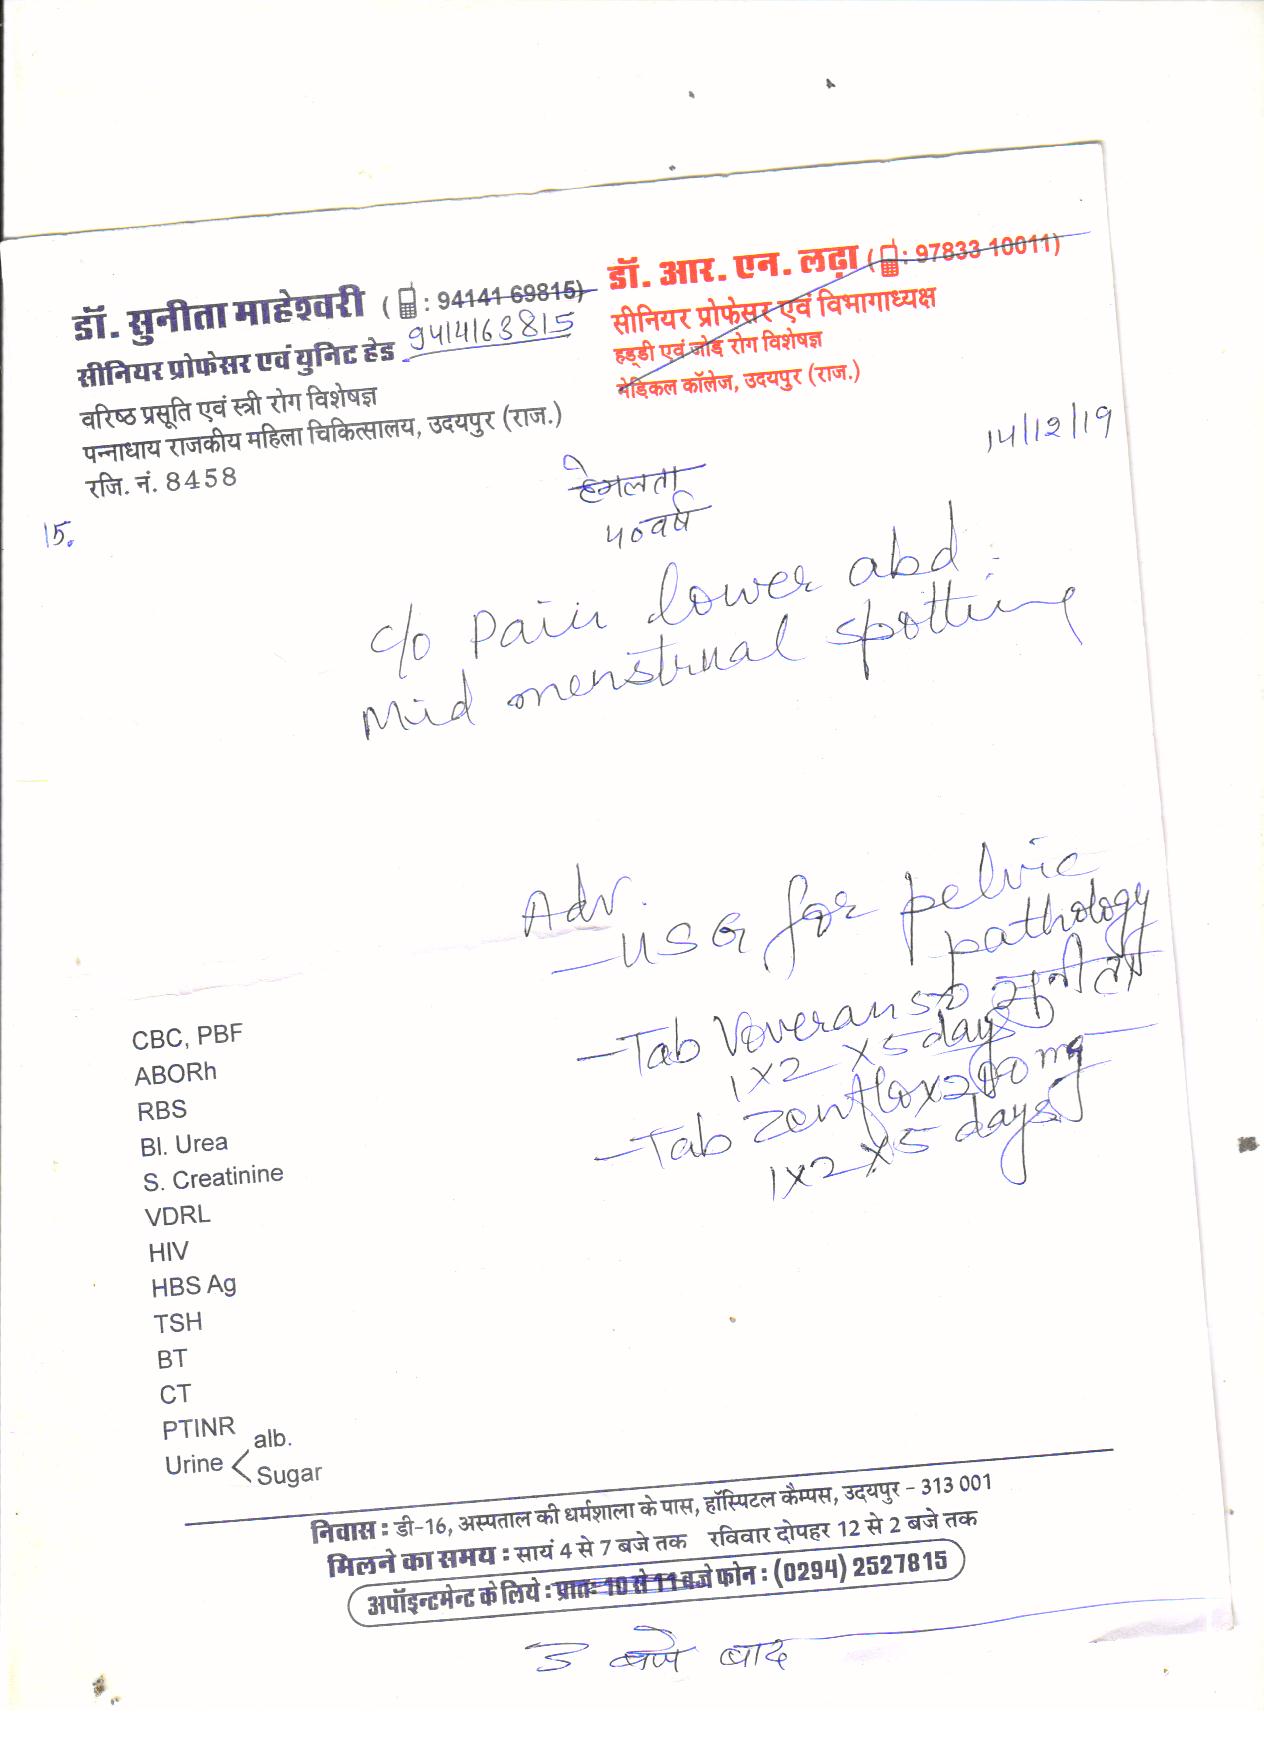 डॉ. सुनीता माहेश्वरी ( : 94141 69815)
9414163815
सीनियर प्रोफेसर एवं युनिट हेड
वरिष्ठ प्रसूति एवं स्त्री रोग विशेषज्ञ
पन्नाधाय राजकीय महिला चिकित्सालय, उदयपुर (राज.)
रजि. नं. 8458
डॉ. आर. एन. लढ़ा ( : 97833 10011)
सीनियर प्रोफेसर एवं विभागाध्यक्ष
हड्डी एवं जोड़ रोग विशेषज्ञ
मेडिकल कॉलेज, उदयपुर (राज.)
14/12/19
15.
हेमलता
40 वर्ष
c/o Pain lower abd
Mid menstrual spotting
Adv.
- USG for pelvic
pathology
सुनीता
- Tab Voveran 50
1 x 2 x 5 days
- Tab Zenflox 200 mg
1 x 2 x 5 days
CBC, PBF
ABORh
RBS
Bl. Urea
S. Creatinine
VDRL
HIV
HBS Ag
TSH
BT
CT
PTINR
Urine < alb.
Sugar
निवास : डी-16, अस्पताल की धर्मशाला के पास, हॉस्पिटल कैम्पस, उदयपुर - 313 001
मिलने का समय : सायं 4 से 7 बजे तक रविवार दोपहर 12 से 2 बजे तक
अपॉइन्टमेन्ट के लिये : प्रातः 10 से 11 बजे फोन : (0294) 2527815
3 बजे बाद